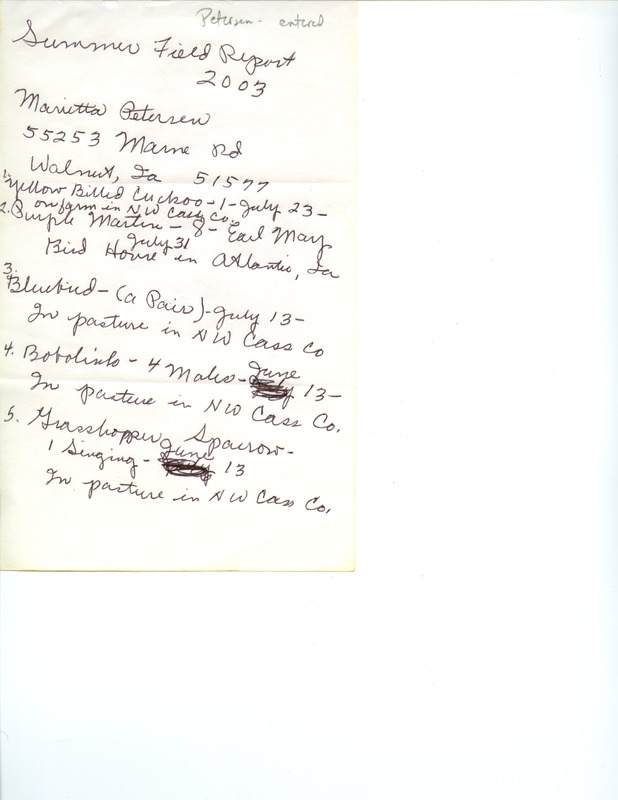 Petersen - entered
Summer Field Report
2003
Marietta Petersen
55253 Marne Rd
Walnut, Ia 51577
1. Yellow Billed Cuckoo - 1 - July 23 -
on farm in NW Cass Co.
2. Purple Martin - 8 - Earl May
July 31
Bird House in Atlantic, Ia
3.
Bluebird - (a Pair) - July 13 -
In pasture in NW Cass Co
4. Bobolink - 4 Males - June 13 -
In pasture in NW Cass Co.
5. Grasshopper Sparrow -
1 Singing - June 13
In pasture in NW Cass Co.